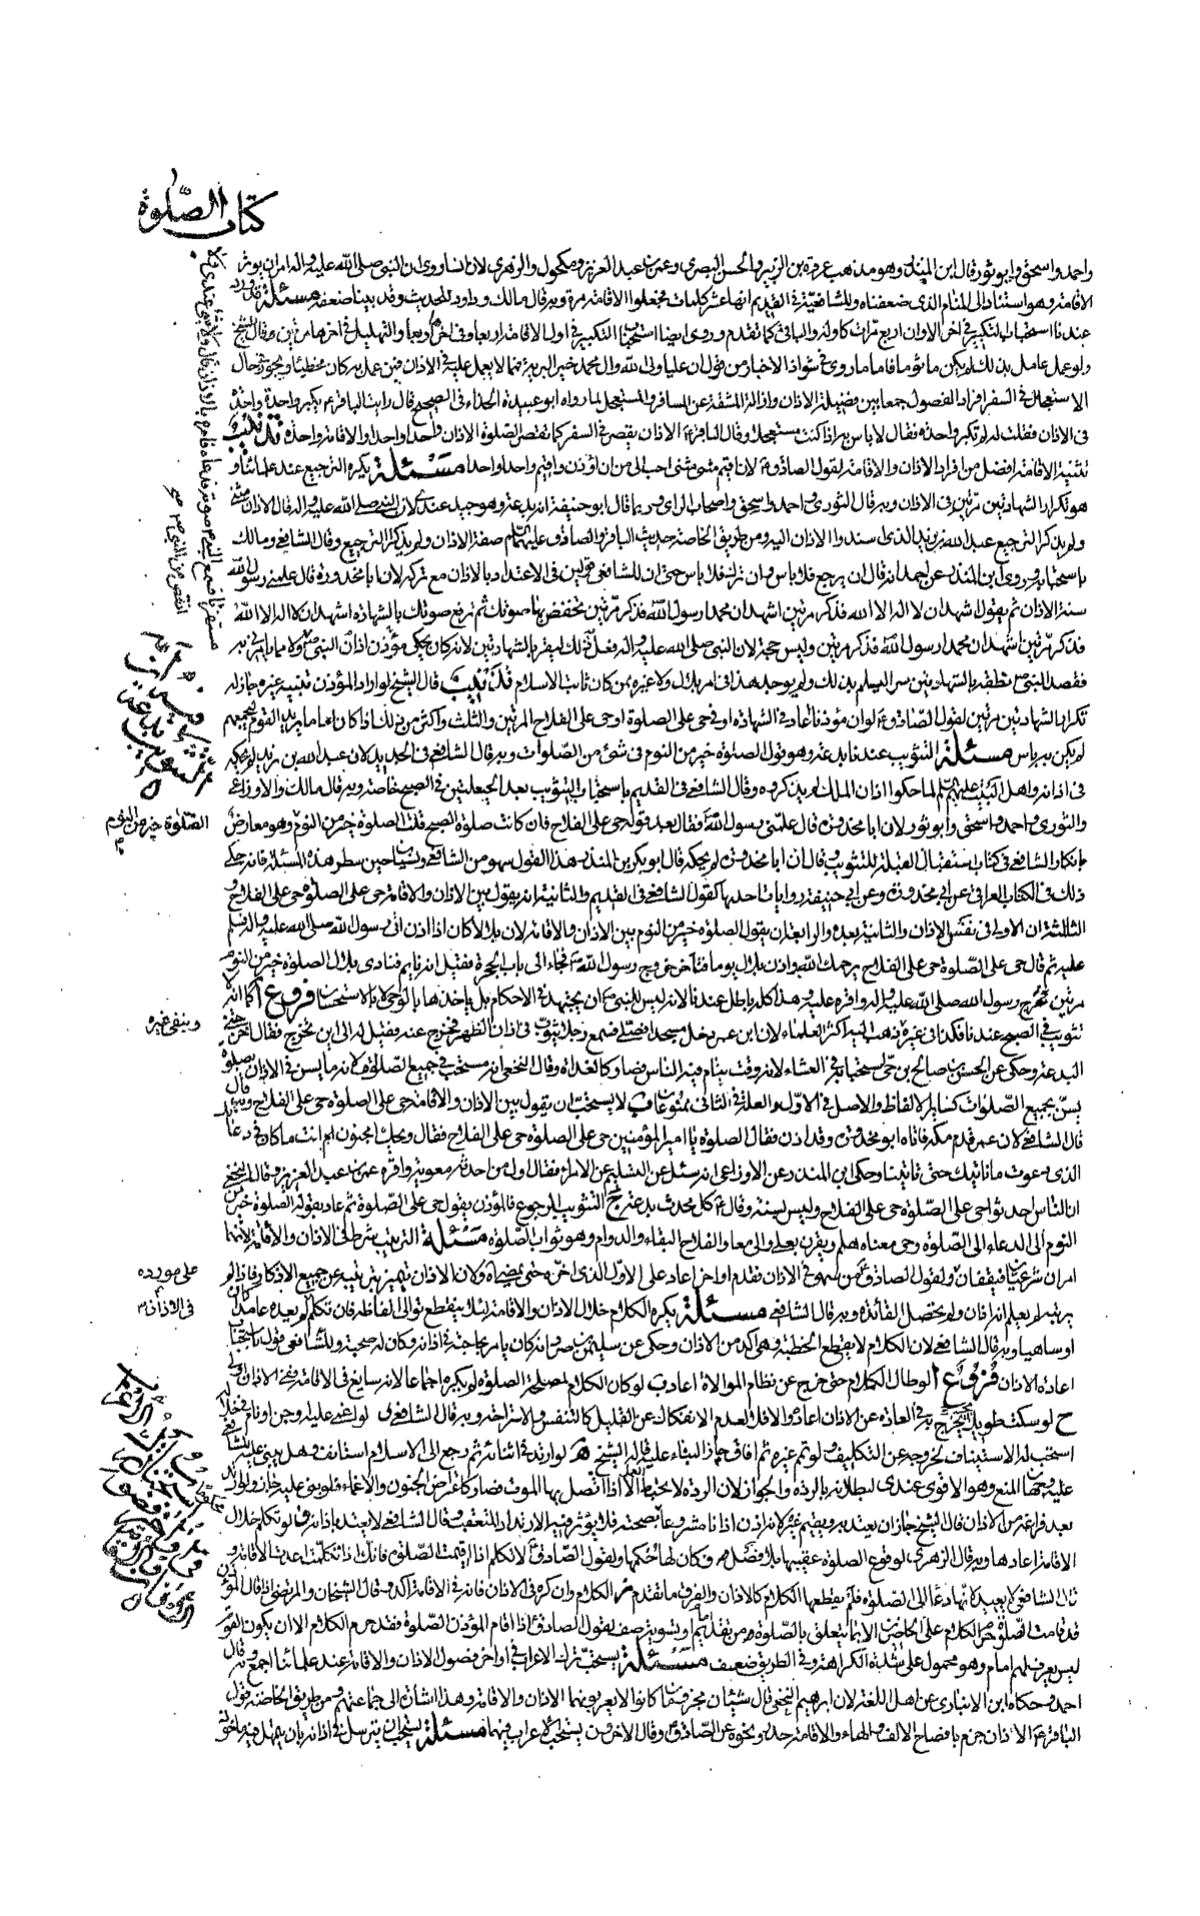 كتاب الصلوة
واحمد واسحق وابو ثور قال ابن المنذر وهو مذهب عروة بن الزبير والحسن البصري وعمر بن عبد العزيز ومكحول والزهري لان انسا روى ان النبي صلى الله عليه واله امر ان يوتر
الاقامة وهو استناد الى المنام الذي ضعفناه وللشافعية في القديم انها عشر كلمات فجعلوا الاقامة مرة وبه قال مالك وداود للحديث وقد بينا ضعفه مسئلة
عندنا استحباب التكبير في اخر الاذان اربع مرات كاوله والباقي كما تقدم وروى ايضا التكبير في اول الاقامة اربعا وفي اخرها اربعا والتهليل في اخرها مرتين وقال الشيخ
ولو عمل عامل بذلك لم يكن ماثوما فاما ما روى في شواذ الاخبار من قول ان عليا ولي الله وال محمد خير البرية فمما لا يعمل عليه في الاذان فمن عمل به كان مخطئا ويجوز في حال
الاستعجال في السفر افراد الفصول جمعا بين فضيلة الاذان وازالة المشقة عن المسافر والمستعجل لما رواه ابو عبيدة الحذاء في الصحيح قال رايت الباقر ع يكبر واحدة واحدة
في الاذان فقلت له لم تكبر واحدة فقال لا باس به اذا كنت مستعجلا وقال الباقر ع الاذان يقصر في السفر كما تقصر الصلوة الاذان واحدا واحدا والاقامة واحدة تذنيب
تثنية الاقامة افضل من افراد الاذان والاقامة لقول الصادق ع لان اقيم مثنى مثنى احب الى من ان اؤذن واقيم واحدا واحدا مسئلة يكره الترجيع عند علمائنا و
هو تكرار الشهادتين مرتين في الاذان وبه قال الثوري واحمد واسحق واصحاب الراى وربما قال ابو حنيفة انه بدعة وهو جيد عندي لان النبي صلى الله عليه واله قال الاذان مثنى
ولم يذكر الترجيع عبد الله بن زيد الذي اسندوا الاذان اليه ومن طريق الخاصة حديث الباقر والصادق عليهما السلام صفة الاذان ولم يذكرا الترجيع وقال الشافعي ومالك
باستحبابه وروى ابن المنذر عن احمد انه قال ان يرجع فلا باس وان ترك فلا باس حتى ان للشافعي قولين في الاعتداد بالاذان مع تركه لان ابا محذورة قال علمني رسول الله
سنة الاذان ثم يقول اشهد ان لا اله الا الله فذكر مرتين اشهد ان محمدا رسول الله فذكر مرتين تخفض بها صوتك ثم ترفع صوتك بالشهادة اشهد ان لا اله الا الله
فذكر مرتين اشهد ان محمدا رسول الله فذكر مرتين وليس حجة لان النبي صلى الله عليه واله فعل ذلك ليقر بالشهادتين لانه كان يحكى مؤذن اذان النبي ص
فقصد النبي ص نطقه بالشهادتين سرا ليسلم بذلك ولم يوجد هذا في امره بلال ولا غيره ممن كان ثابت الاسلام تذنيب قال الشيخ لو اراد المؤذن تنبيه غيره جاز له
تكرار الشهادتين مرتين لقول الصادق ع لو ان مؤذنا اعاد في الشهادة او في حي على الصلوة او حي على الفلاح المرتين والثلث واكثر من ذلك اذا كان اماما يريد القوم ليجمعهم
لم يكن به باس مسئلة التثويب عندنا بدعة وهو قول الصلوة خير من النوم في شئ من الصلوات وبه قال الشافعي في الجديد لان عبد الله بن زيد لم يحكه
في اذانه واهل البيت عليهم السلم لما حكوا اذان الملك لم يذكروه وقال الشافعي في القديم باستحباب التثويب بعد الحيعلتين في الصبح خاصة وبه قال مالك والاوزاعي
والثوري واحمد واسحق وابو ثور لان ابا محذورة قال علمني رسول الله فقال بعد قوله حي على الفلاح فان كانت صلوة الصبح قلت الصلوة خير من النوم وهو معارض
بانكار الشافعي في كتاب استقبال القبلة للتثويب وقال ان ابا محذورة لم يحكه قال ابو بكر بن المنذر هذا القول سهو من الشافعي ونسيان حين سطر هذه المسئلة فانه حكى
ذلك في الكتاب العراقي عن ابي محذورة وعن ابي حنيفة روايات احدها كقول الشافعي في القديم والثانية انه يقول بين الاذان والاقامة حي على الصلوة حي على الفلاح و
الثالثة ان الاولى في نفس الاذان والثانية بعده والرابعة ان يقول الصلوة خير من النوم بين الاذان والاقامة لان بلالا كان اذا اذن اتى رسول الله صلى الله عليه واله فسلم
عليه ثم قال حي على الصلوة حي على الفلاح يرحمك الله واذن بلال يوما فتاخر خروج رسول الله فجاء الى باب الحجرة فقيل انه نايم فنادى بلال الصلوة خير من النوم
مرتين فخرج رسول الله صلى الله عليه واله واقره عليه وهذا كله باطل عندنا لانه ليس للنبي ص ان يجتهد في الاحكام بل ياخذها بالوحي لا بالاستحسان فروع ا كما انه
تثويب في الصبح عندنا فكذا في غيره ذهب اليه اكثر العلماء لان ابن عمر دخل مسجدا فصلى فسمع رجلا يثوب في اذان الظهر فخرج عنه فقيل له الى اين تخرج فقال اخرجتني
البدعة وحكى عن الحسن بن صالح بن حي استحبابه في العشاء لانه وقت ينام فيه الناس فصار كالغداة وقال النخعي انه مستحب في جميع الصلوة لانه ما يسن في الاذان لصلوة
يسن بجميع الصلوات كسائر الالفاظ والاصل في الاول والعلة في الثاني ممنوعان ب لا يستحب ان يقول بين الاذان والاقامة حي على الصلوة حي على الفلاح وبه
قال الشافعي لان عمر قدم مكة فاتاه ابو محذورة وقد اذن فقال الصلوة يا امير المؤمنين حي على الصلوة حي على الفلاح فقال ويحك امجنون انت ما كان في دعائك
الذي دعوت ما ناتيك حتى تاتينا وحكى ابن المنذر عن الاوزاعي انه سئل عن التسليم عن الامراء فقال اول من احدثه معوية واقره عمر بن عبد العزيز وقال الشيخ
ان الناس احدثوا حي على الصلوة حي على الفلاح وليس بسنة وقال ع كل محدث بدعة ج التثويب الرجوع فالمؤذن يقول حي على الصلوة ثم عاد بقوله الصلوة خير من
النوم الى الدعاء الى الصلوة وحي معناه هلم ويقرن بعلى والى معا والفلاح البقاء والدوام وهو ثواب الصلوة مسئلة الترتيب شرط في الاذان والاقامة لانهما
امران شرعيان فيقفان ولقول الصادق ع من سهى في الاذان فقدم او اخر اعاد على الاول الذي اخره حتى يمضي الى اخره ولان الاذان تميز بترتيبه عن جميع الاذكار فاذا لم
يرتبه لم يعلم انه اذان ولم تحصل الفائدة وبه قال الشافعي مسئلة يكره الكلام خلال الاذان والاقامة لئلا ينقطع توالي الفاظه فان تكلم لم يعده عامدا كان
او ساهيا وبه قال الشافعي لان الكلام لا يقطع الخطبة وهي اكد من الاذان وحكى عن سليمن بن صرد انه كان يامر بحاجته في اذانه وكان له صحبة وللشافعي قول باستحباب
اعادة الاذان فروع ا لو طال الكلام حتى خرج عن نظام الموالاة اعاد ب لو كان الكلام لمصلحة الصلوة لم يكره اجماعا لانه سايغ في الاقامة ففي الاذان اولى
ج لو سكت طويلا يخرج به في العادة عن الاذان اعاد والا فلا لعدم الانفكاك عن القليل كالتنفس والاستراحة وبه قال الشافعي د لو اغمى عليه او جن او نام في خلاله
استحب له الاستيناف لخروجه عن التكليف ولو تم غيره ثم افاق جاز البناء عليه قاله الشيخ ه لو ارتد في اثنائه ثم رجع الى الاسلام استانف وهل يبنى عليه للشافعي
عليه وجهان المنع وهو الاقوى عندي لبطلانه بالردة والجواز لان الردة لا تحبط العمل الا اذا اتصل بها الموت فصار كاعتراض الجنون والاغماء فلو بنى عليه جاز ولو ارتد
بعد فراغه من الاذان قال الشيخ جاز ان يعتد به ويقيم غيره لانه اذن اذانا مشروعا بصحته فلا يؤثر فيه الارتداد المتعقب وقال الشافعي لا يعتد باذانه و لو تكلم خلال
الاقامة اعادها وبه قال الزهري لوقوع الصلوة عقيبها بلا فصل وكان لها حكمها ولقول الصادق ع لا تكلم اذا اقيمت الصلوة فانك اذا تكلمت اعدت الاقامة و
قال الشافعي لا يعيد لانها دعاء الى الصلوة فلم يقطعها الكلام كالاذان والفرق ما تقدم ز الكلام وان كره في الاذان فانه في الاقامة اكد وقال الشيخان والمرتضى اذا قال المؤذن
قد قامت الصلوة حرم الكلام على الحاضرين الا بما يتعلق بالصلوة من تقديم امام او تسوية صف لقول الصادق ع اذا اقام المؤذن الصلوة فقد حرم الكلام الا ان يكون القوم
ليس يعرف لهم امام وهو محمول على شدة الكراهة وفي الطريق ضعيف مسئلة يستحب ترك الاعراب في اواخر فصول الاذان والاقامة عند علمائنا اجمع وبه قال
احمد وحكاه ابن الانباري عن اهل اللغة لان ابراهيم النخعي قال شيئان مجزومان كانوا لا يعربونهما الاذان والاقامة وهذا اشارة الى جماعتهم ومن طريق الخاصة قول
الباقر ع الاذان جزم بافصاح الالف والهاء والاقامة حدر ونحوه عن الصادق ع وقال الاخرون يستحب الاعراب فيهما مسئلة يستحب ان يترسل في اذانه بان يتمهل فيه ماخوذ
الصلوة خير من النوم
وينفى غيره
على مورده